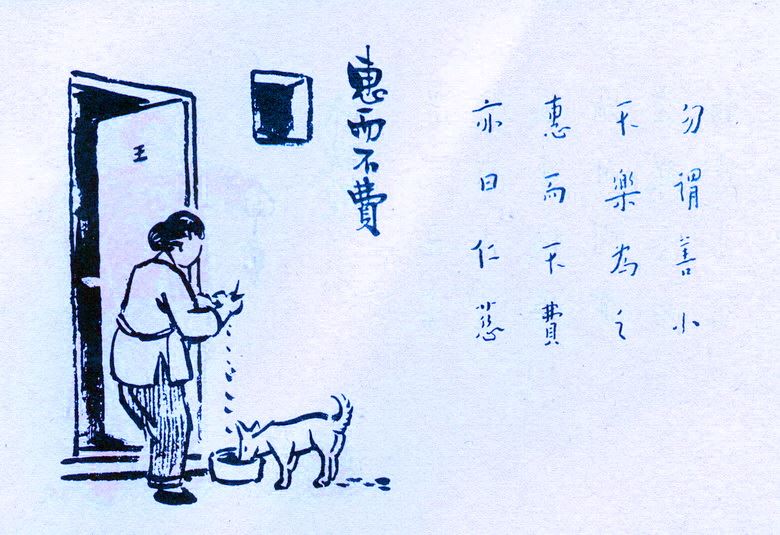 勿謂善小
不樂為之
惠而不費
亦曰仁慈
惠而不費
王